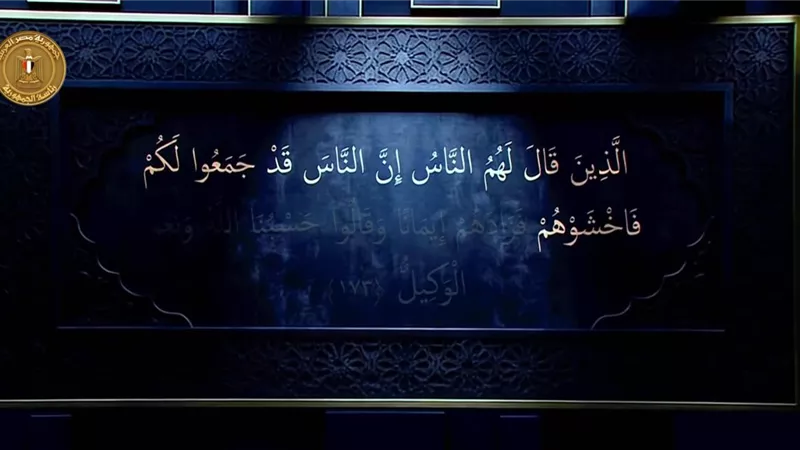 جمهورية مصر العربية
رئاسة الجمهورية
الَّذِينَ قَالَ لَهُمُ النَّاسُ إِنَّ النَّاسَ قَدْ جَمَعُوا لَكُمْ
فَاخْشَوْهُمْ فَزَادَهُمْ إِيمَانًا وَقَالُوا حَسْبُنَا اللَّهُ وَنِعْمَ
الْوَكِيلُ ﴿١٧٣﴾